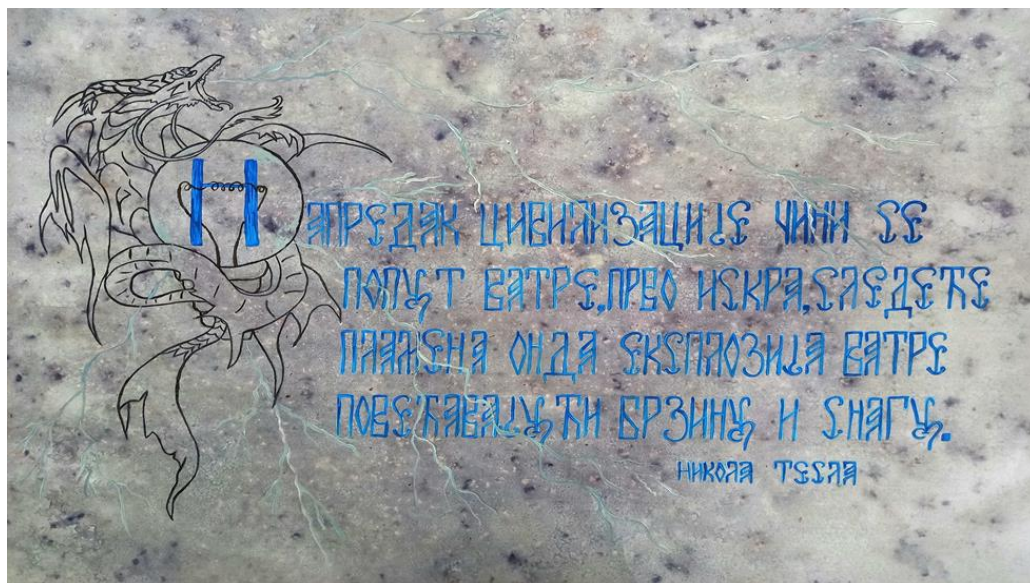 НАПРЕДАК ЦИВИЛИЗАЦИЈЕ ЧИНИ СЕ
ПОПУТ ВАТРЕ, ПРВО ИСКРА, СЛЕДЕЋЕ
ПЛАМЕНА ОНДА ЕКСПЛОЗИЈА ВАТРЕ
ПОВЕЋАВАЈУЋИ БРЗИНУ И СНАГУ.
НИКОЛА ТЕСЛА